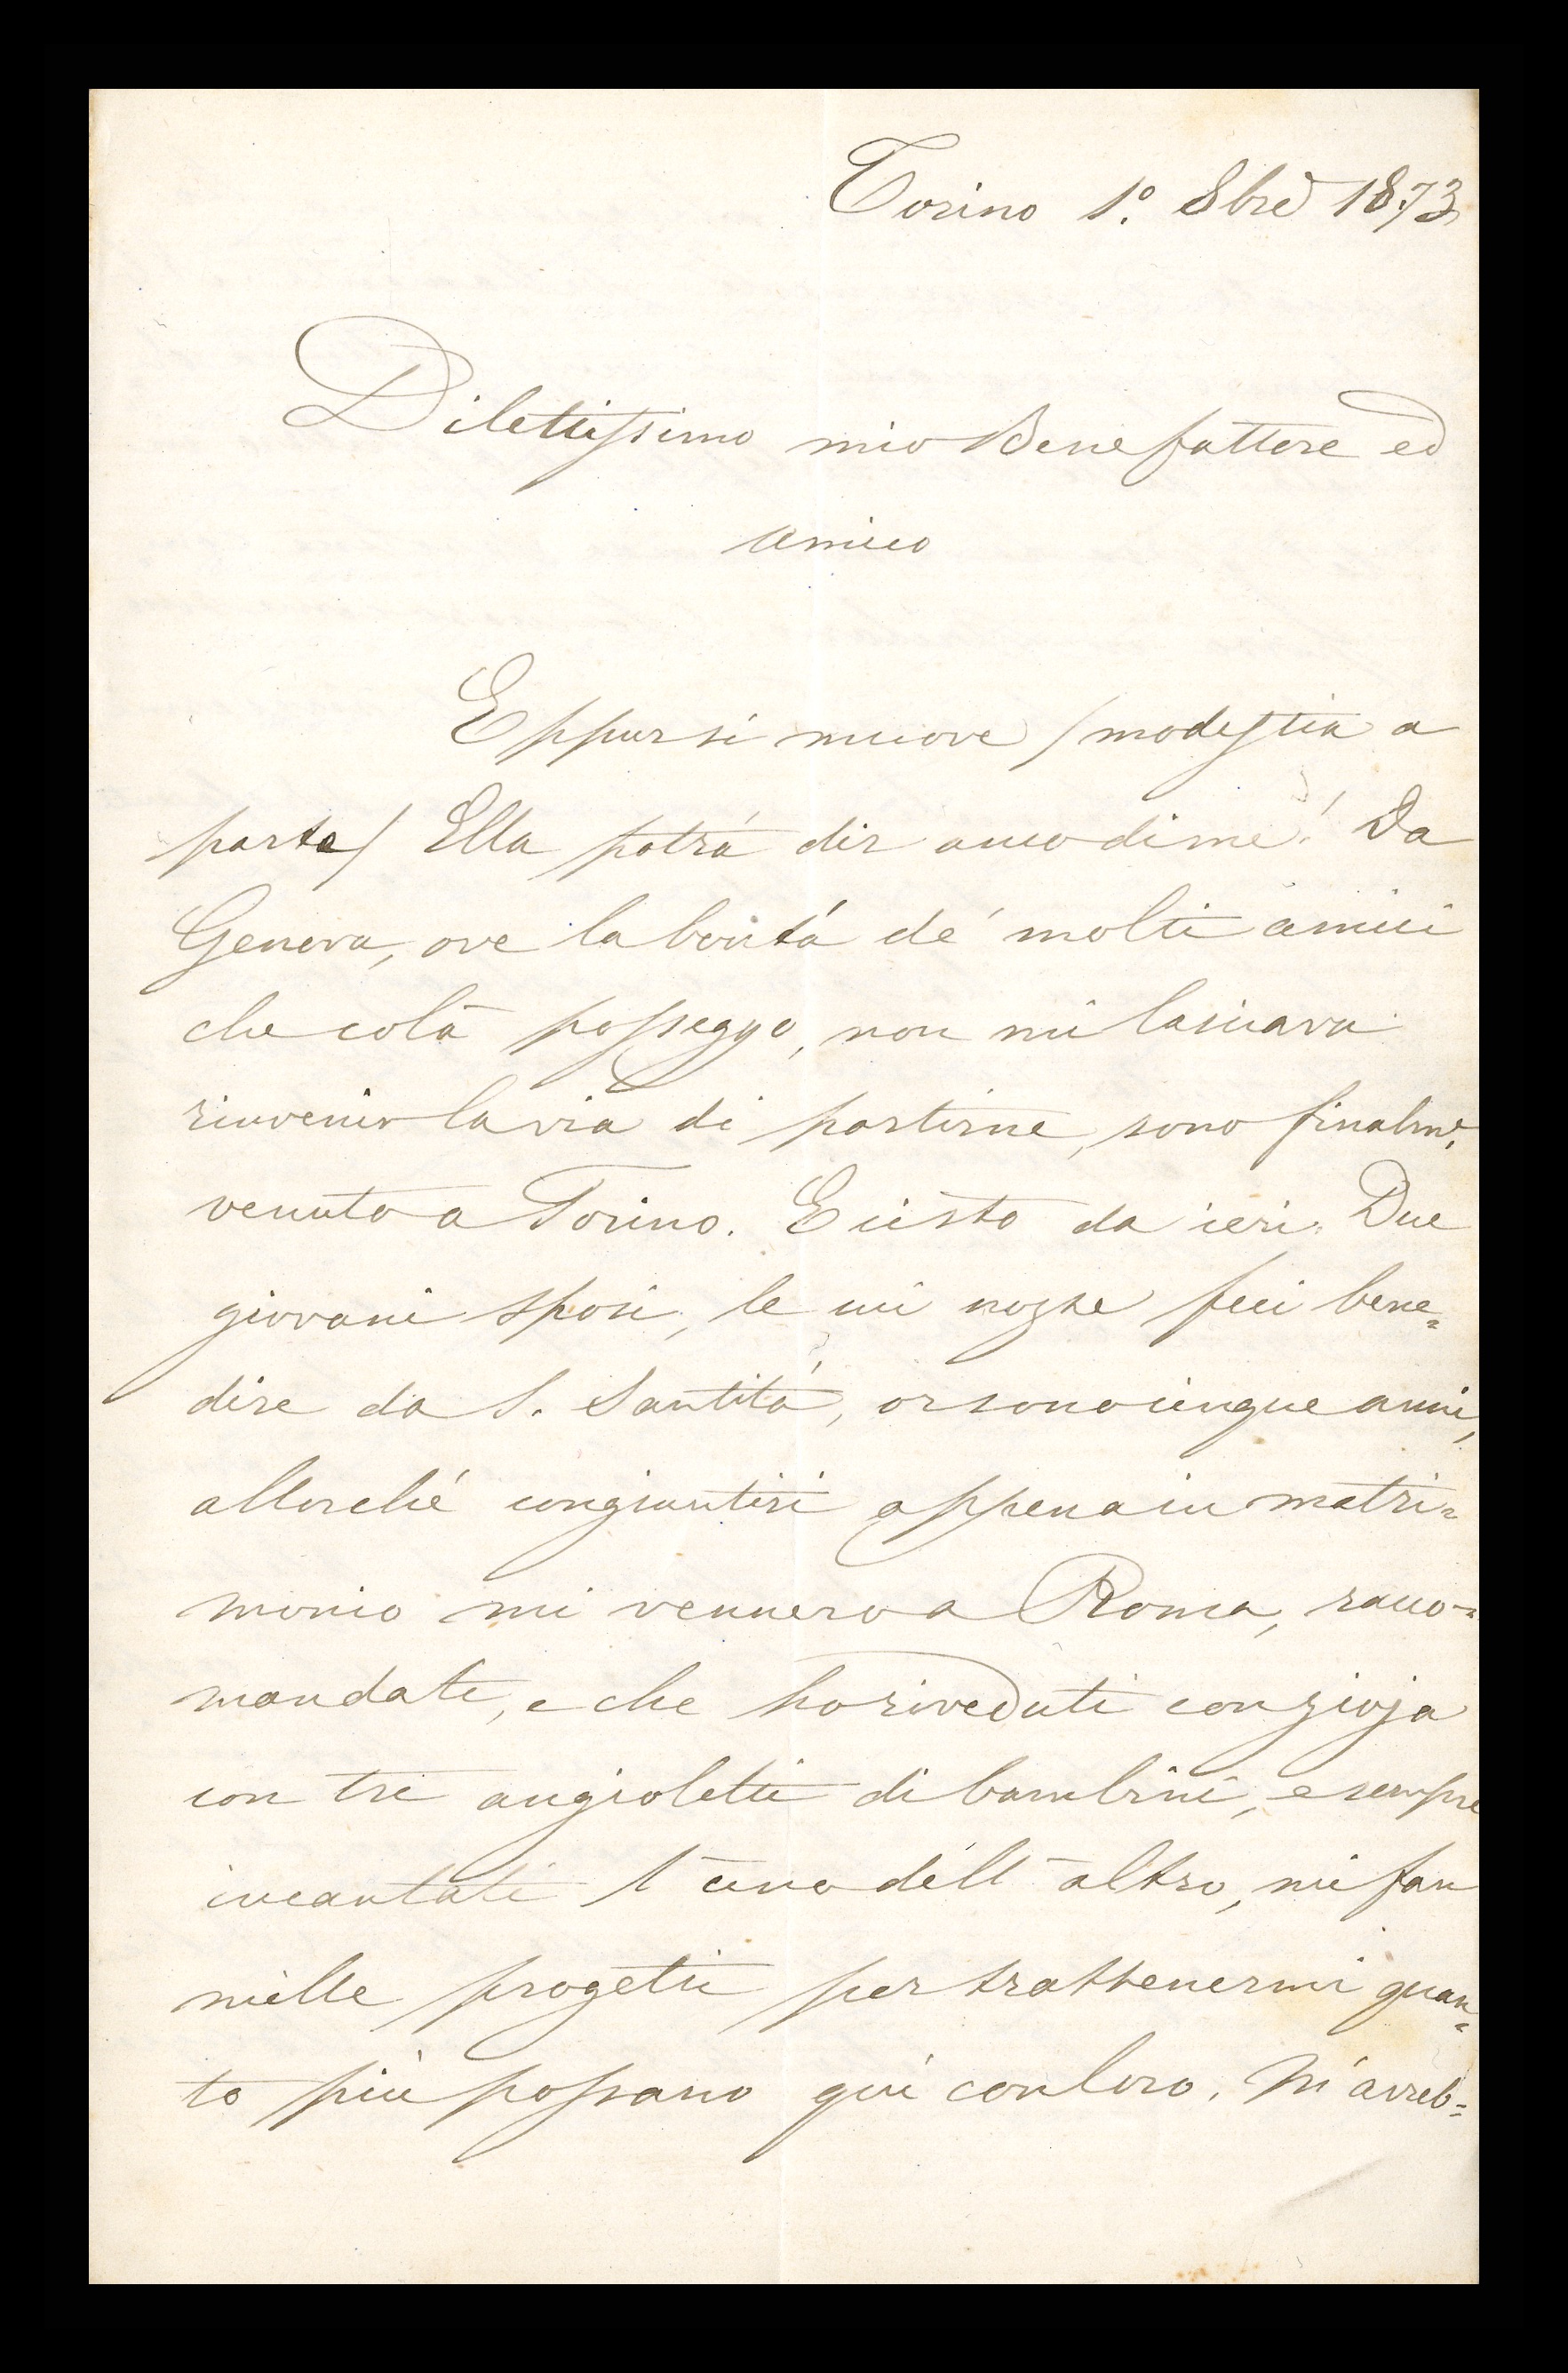 Torino 1.º 8bre 1873
Dilettissimo mio Benefattore ed
amico
Eppur si muove /modestia a
parte/ Ella potrá dir anco di me! Da
Genova, ove la bontá de' molti amici
che colá posseggo, non mi lasciava
rinvenir la via di partirne, sono finalm.e
venuto a Torino. E ciò da ieri. Due
giovani sposi, le cui nozze feci bene=
dire da S. Santitá, or sono cinque anni,
allorché congiuntisi appena in matri=
monio mi vennero a Roma, racco=
mandati, e che ho riveduti con gioja
con tre angioletti di bambini, e sempre
incantati l'uno dell'altro, mi fan
mille progetti per trattenermi quan=
to più possano qui con loro. M'avreb=